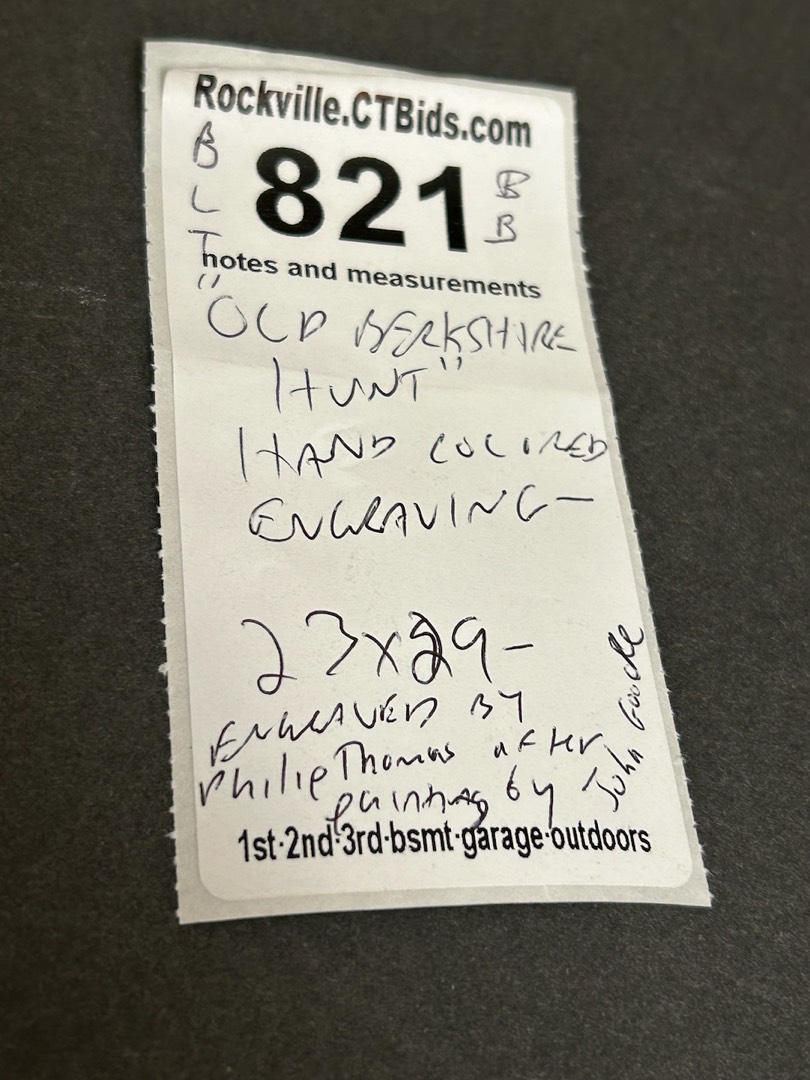 Rockville.CTBids.com
BLT
821
BB
notes and measurements
"OLD BERKSHIRE
HUNT"
HAND COLORED
ENGRAVING-
23x29-
ENGRAVED BY
Philip Thomas after
painting by John Goode
1st·2nd·3rd·bsmt·garage·outdoors